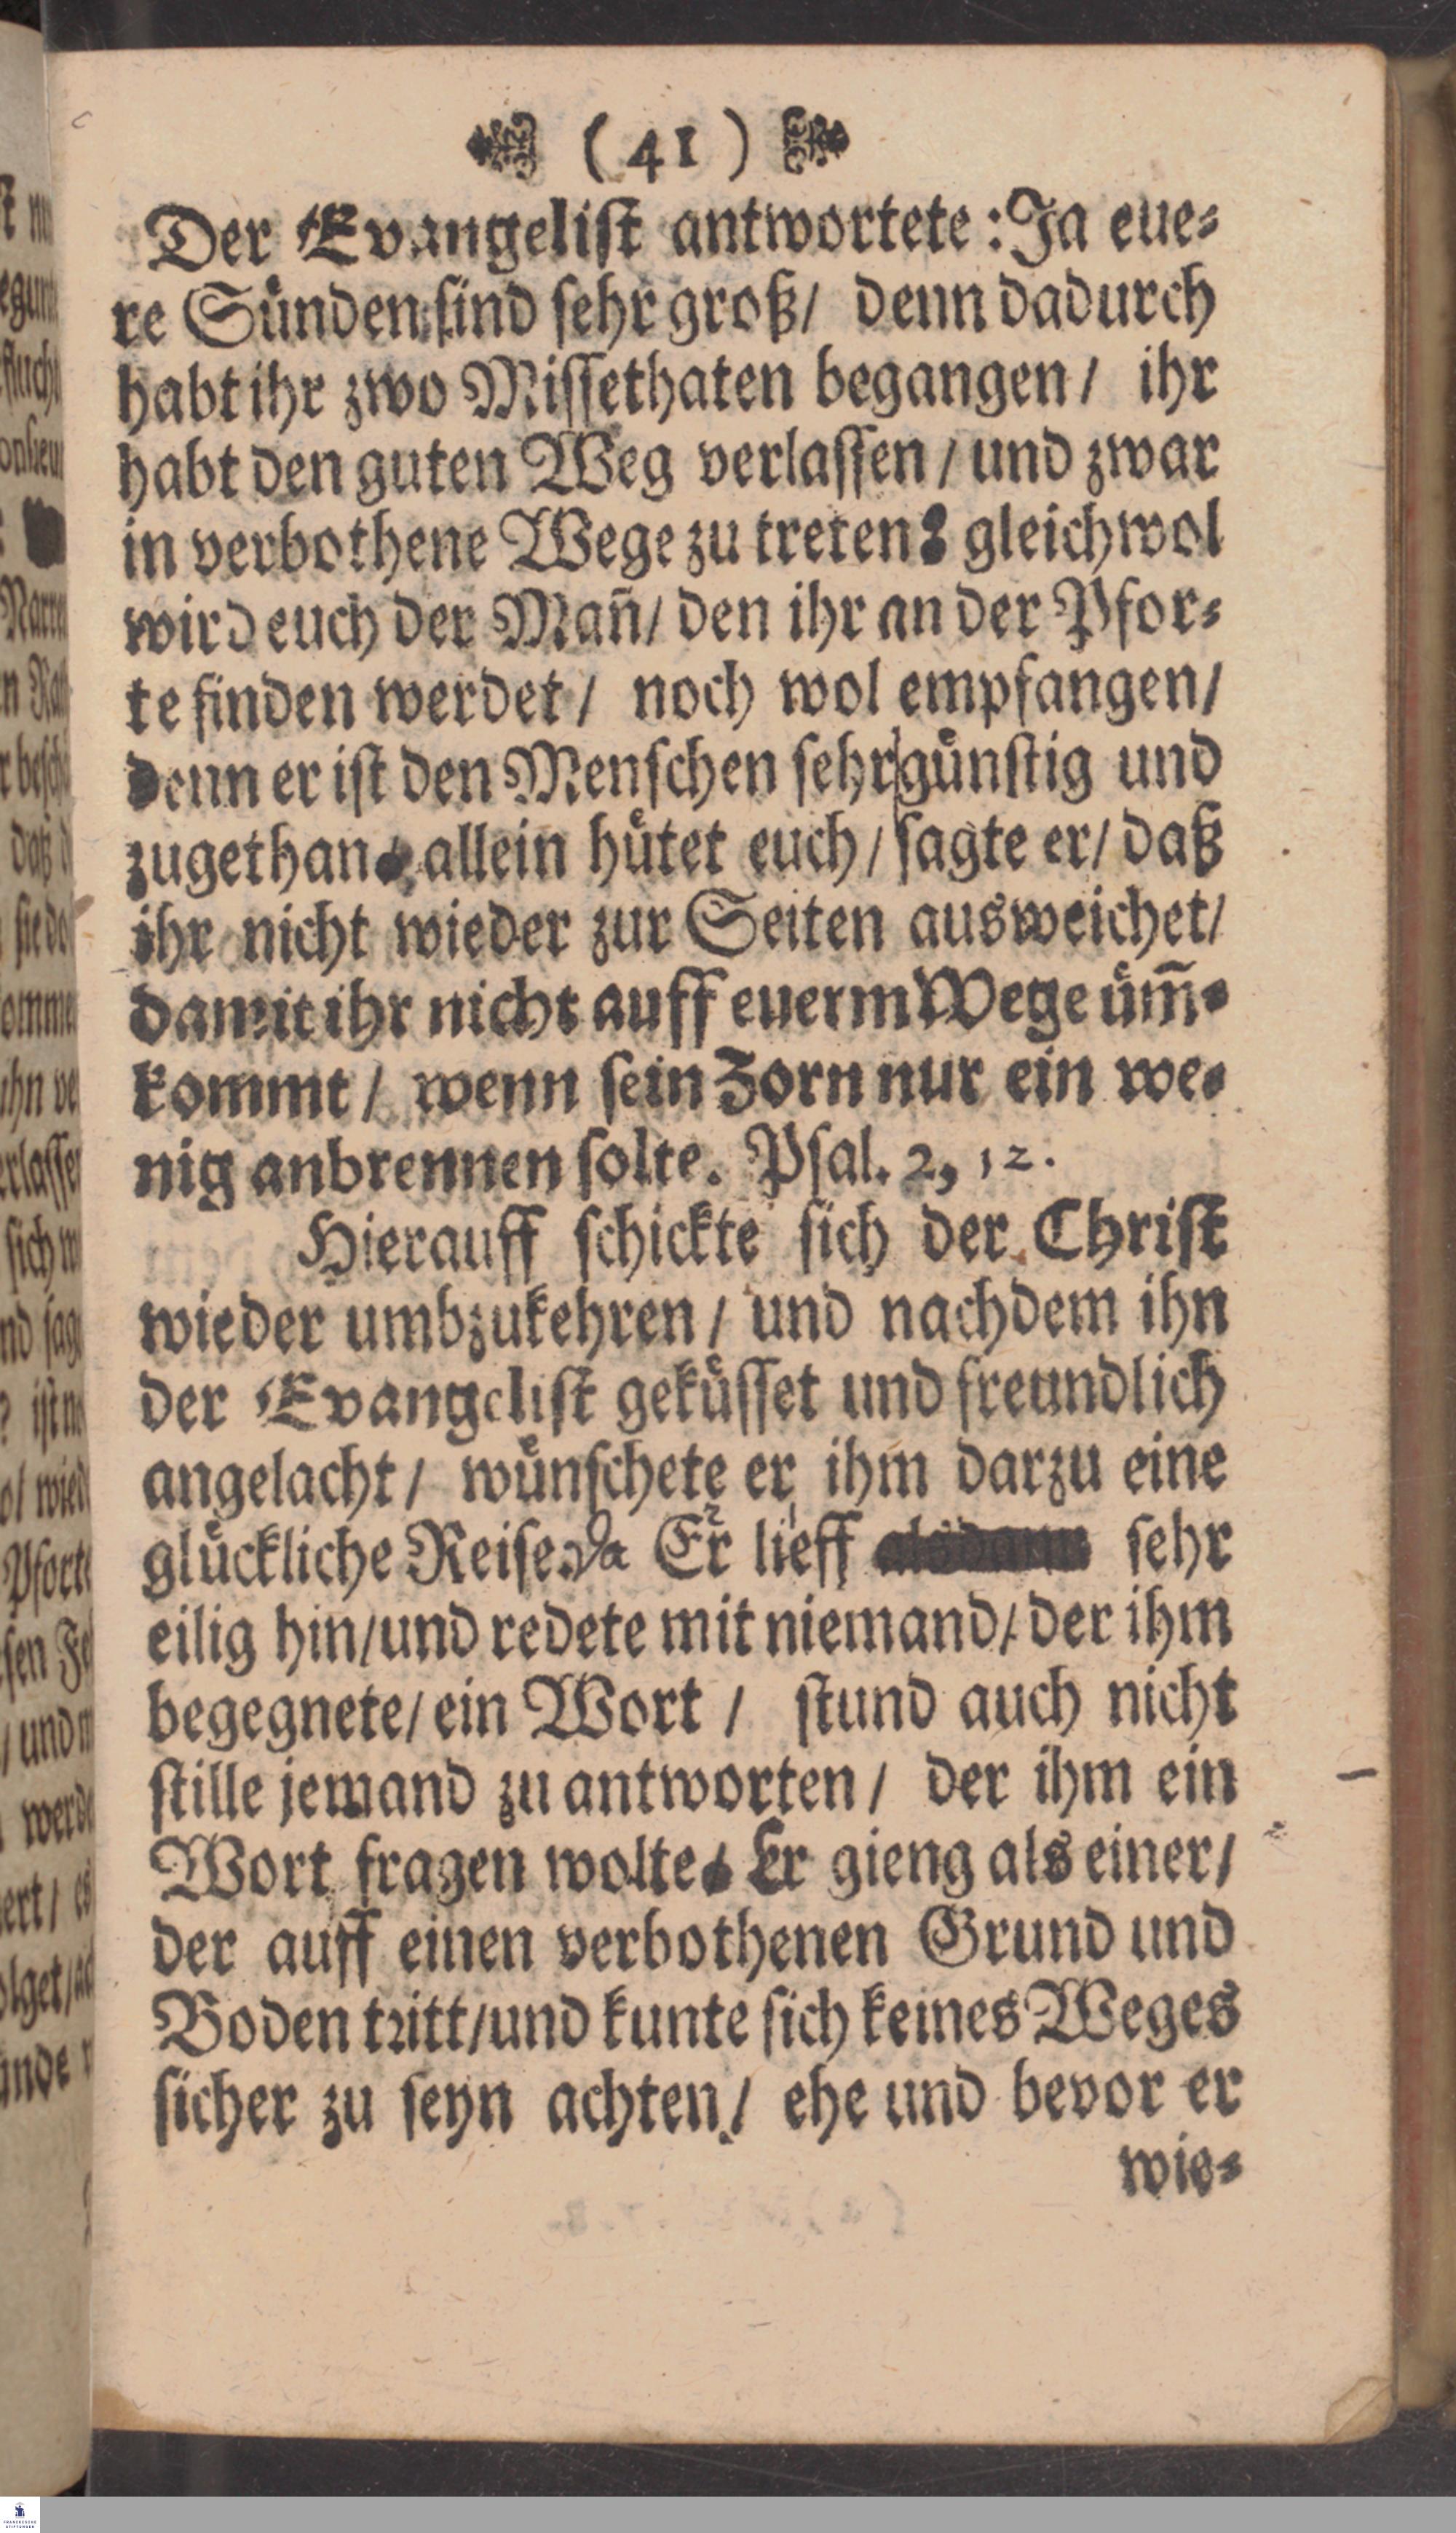 (41)
Der Evangelist antwortete: Ja eue-
re Sünden sind sehr groß/ denn dadurch
habt ihr zwo Missethaten begangen/ ihr
habt den guten Weg verlassen/ und zwar
in verbothene Wege zu treten: gleichwol
wird euch der Mañ/ den ihr an der Pfor-
te finden werdet/ noch wol empfangen/
denn er ist den Menschen sehr günstig und
zugethan; allein hütet euch/ sagte er/ daß
ihr nicht wieder zur Seiten ausweichet/
damit ihr nicht auff euerm Wege üm̃-
kommt/ wenn sein Zorn nur ein we-
nig anbrennen solte. Psal. 2, 12.
Hierauff schickte sich der Christ
wieder umbzukehren/ und nachdem ihn
der Evangelist geküsset und freundlich
angelacht/ wünschete er ihm darzu eine
glückliche Reise. Da Er lieff alsdann sehr
eilig hin/ und redete mit niemand/ der ihm
begegnete/ ein Wort/ stund auch nicht
stille jemand zu antworten/ der ihm ein
Wort fragen wolte. Er gieng als einer/
der auff einen verbothenen Grund und
Boden tritt/ und kunte sich keines Weges
sicher zu seyn achten/ ehe und bevor er
wie-